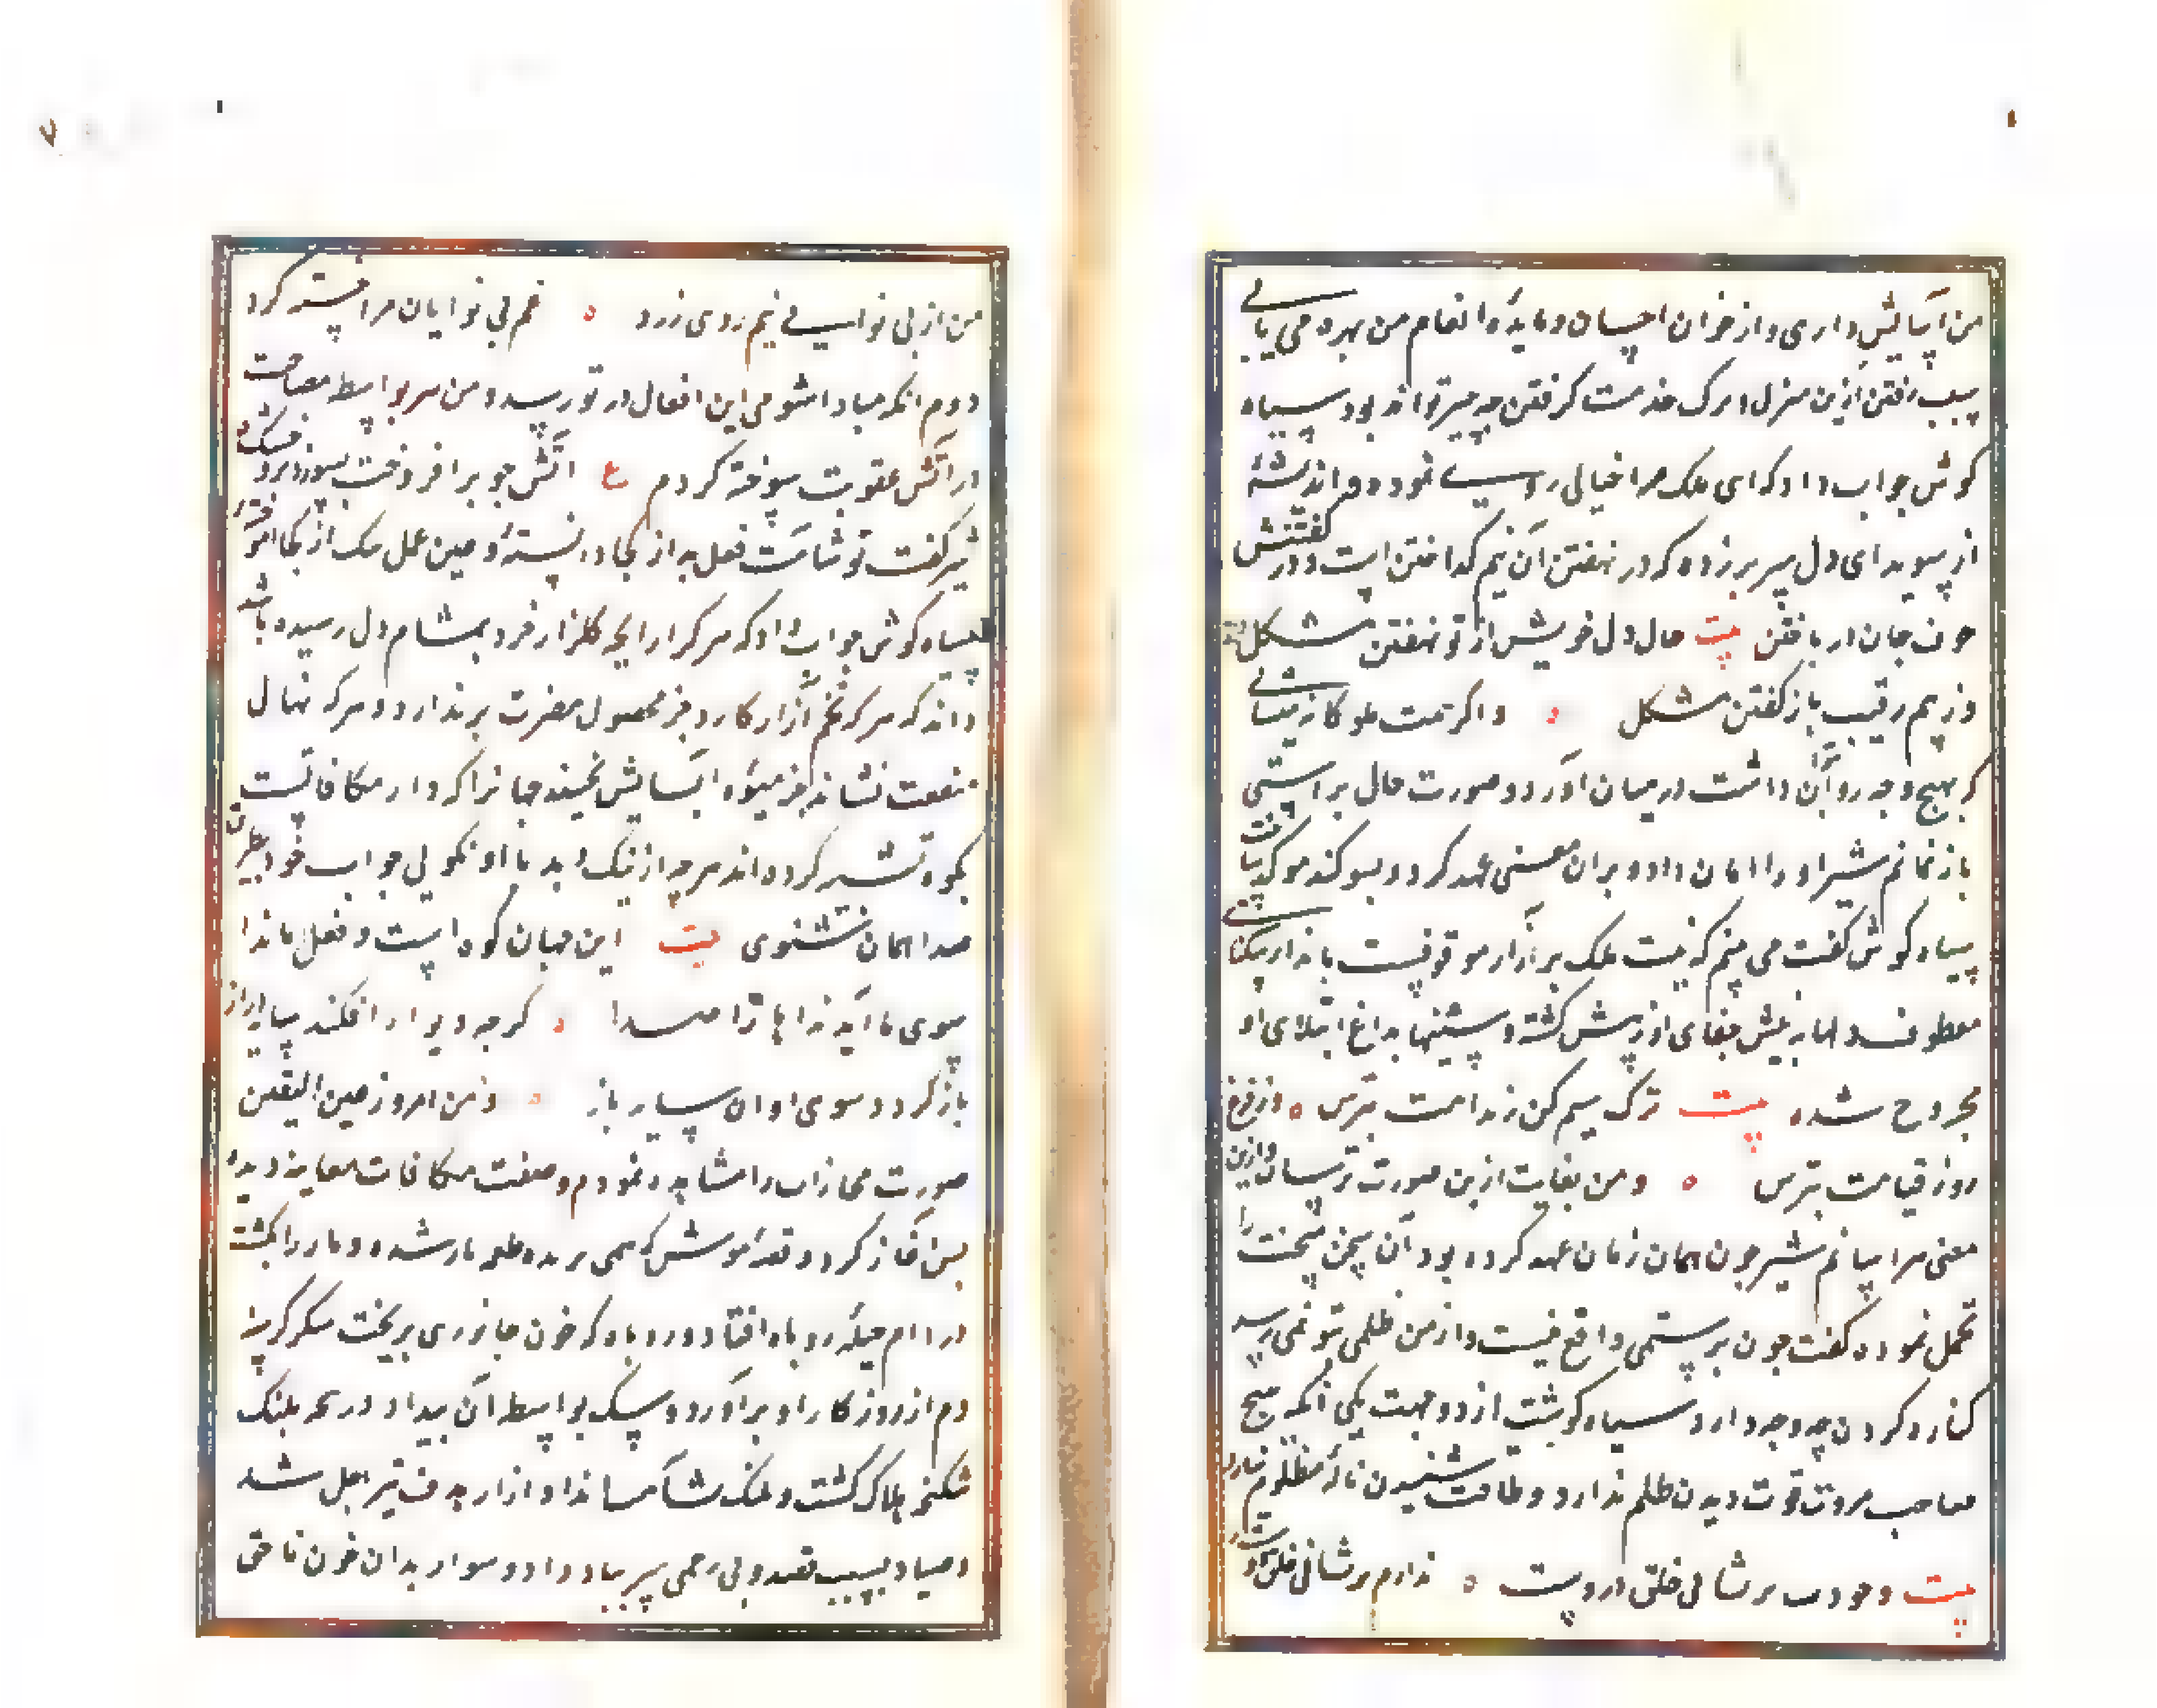 من آسایش داری و از خوان احسان و مایدهٔ انعام من بهره می یابی
سبب رفتن ازین منزل و ترک خدمت گرفتن چه چیز تواند بود سیاه
کوش جواب داد که ای ملک مرا خیالی روی نموده و اندیشهٔ
از سویدای دل سر بر زده که در نهفتن آن بیم کداختن است و در کفتنش
خوف جان در باختن بیت حال دل خویش از تو نهفتن مشکل
وز بیم رقیب باز کفتن مشکل و اگر همت ملوکانه
که بهیچ وجه روا توان داشت در میان آورد و صورت حال براستی
باز نمانم شیر او را امان داد و بران معنی عهد کرد و بسوکند موکد ساخت
سیاه کوش کفت می بینم که نیت ملک بر آزار موقوفست
معطوف و دلها به نیش جفای او ریش کشته و سینها بداغ ابتلای او
مجروح شده بیت ترک ستم کن ز ندامت بترس وز فزع
روز قیامت بترس و من بغایت ازین صورت ترسان وازین
معنی هراسانم شیر چون همان زمان عهد کرده بود آن سخن سخت را
تحمل نموده کفت چون بر تو ستمی واقع نیست و از من ظلمی بتو نمی رسد
کناره کردن چه وجه دارد سیاه کوش کفت از دو جهت یکی آنکه هیچ
صاحب مروت قوت دیدن ظلم ندارد و طاقت شنیدن نالهٔ مظلوم نیارد
بیت وجودت پریشانی خلق ازوست ندارم پریشانی خلق دوست
من از بی نوایی نیم روی زرد غم بی نوایان مرا خسته کرد
دوم آنکه مبادا شومی این افعال در تو رسد و من نیز بواسطه مصاحبت
در آتش عقوبت سوخته کردم ع آتش چو بر افروخت بسوزد تر و خشک
شیر کفت تو شامت فعل بد از کجا دانستهٔ و یمن عمل نیک از کجا آموخته
سیاه کوش جواب داد که هر کرا رایحه کلزار خرد بمشام دل رسیده باشد
داند که هر که تخم آزار کارد جز محصول مضرت بر ندارد و هر که نهال
منفعت نشاند جز میوهٔ آسایش نچیند جهانرا که دار مکافاتست
بکوه تشبیه کرده اند هر چه از نیک و بد با او کوئی جواب خود بطریق
صدا همان شنوی بیت این جهان کوه است و فعل ما ندا
سوی ما آید نداها را صدا کرچه دیوار افکند سایه دراز
باز کردد سوی او آن سایه باز و من امروز بعین الیقین
صورت مجازات را مشاهده نمودم و صفت مکافات معاینه دیدم
پس آغاز کرد و قصهٔ موش که سعی بریده طعمه مار شده و مار را خارپشت
در دام حیله روباه افتاد و روباه که خون جانوری بریخت سک کرک
دم از روزکار او بر آورد و سک بواسطه آن بیداد در پنجه پلنک
شکنجه هلاک کشت و پلنک بشامت ایذا و آزار هدف تیر اجل شد
و صیاد بسبب قصد و بی رحمی سر بباد داد و سوار بدان خون ناحق